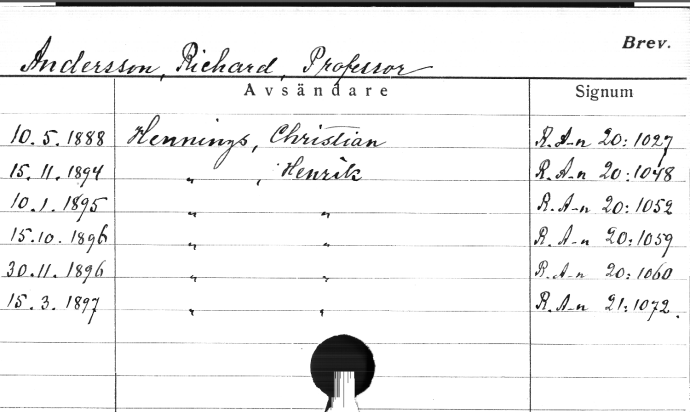 Brev.
Andersson, Richard, Professor
Avsändare Signum
10.5.1888 Hennings, Christian R. A-n 20:1027
15.11.1894 " , Henrik R. A-n 20:1048
10.1.1895 " " R. A-n 20:1052
15.10.1896 " " R. A-n 20:1059
30.11.1896 " " R. A-n 20:1060
15.3.1897 " " R. A-n 21:1072.